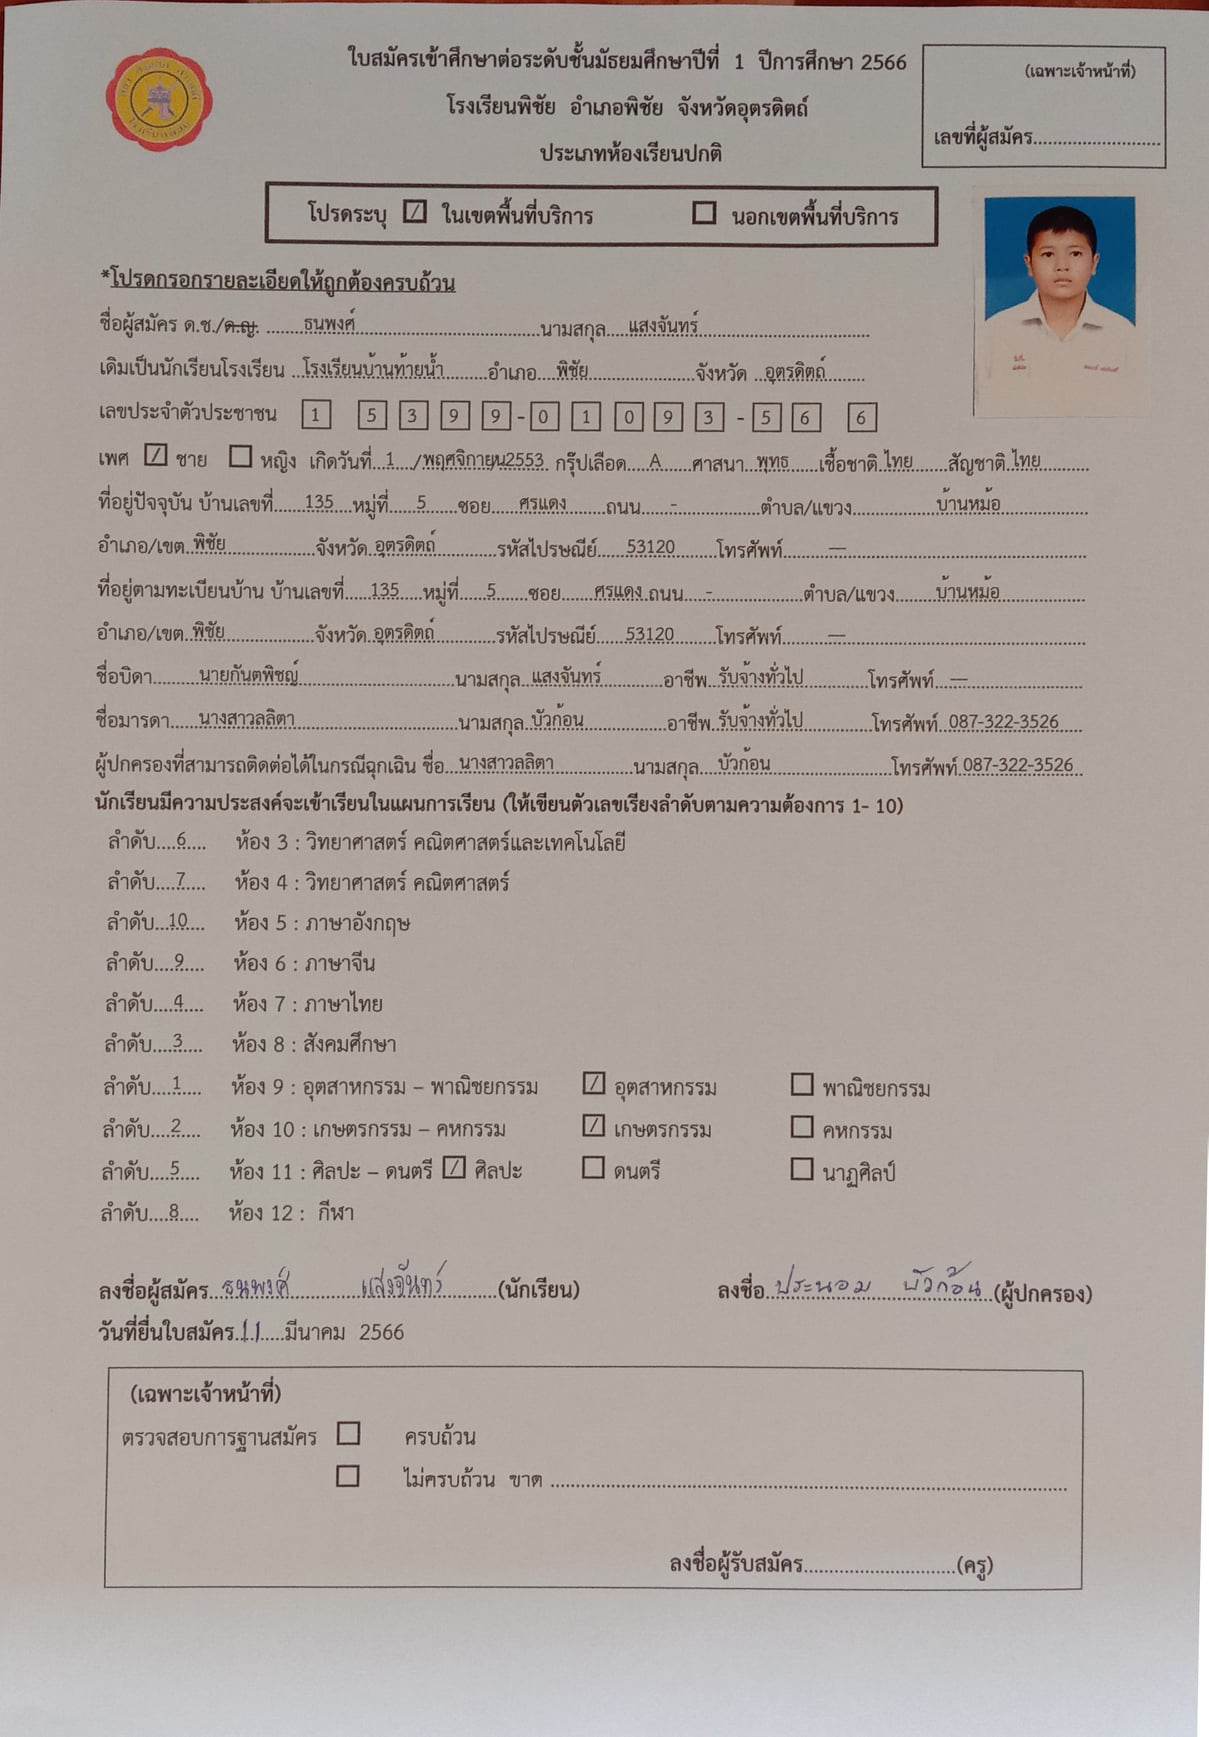 ใบสมัครเข้าศึกษาต่อระดับชั้นมัธยมศึกษาปีที่ 1 ปีการศึกษา 2566
(เฉพาะเจ้าหน้าที่)
โรงเรียนพิชัย อำเภอพิชัย จังหวัดอุตรดิตถ์
เลขที่ผู้สมัคร..........................
ประเภทห้องเรียนปกติ
โปรดระบุ ☑ ในเขตพื้นที่บริการ ☐ นอกเขตพื้นที่บริการ
*โปรดกรอกรายละเอียดให้ถูกต้องครบถ้วน
ชื่อผู้สมัคร ด.ช./ด.ญ. ........ธนพงศ์........นามสกุล....แสงจันทร์........
เดิมเป็นนักเรียนโรงเรียน ..โรงเรียนบ้านท้ายน้ำ........อำเภอ....พิชัย........จังหวัด ..อุตรดิตถ์........
เลขประจำตัวประชาชน 1 5 3 9 9 - 0 1 0 9 3 - 5 6 6
เพศ ☑ ชาย ☐ หญิง เกิดวันที่...1..../พฤศจิกายน2553. กรุ๊ปเลือด....A......ศาสนา..พุทธ......เชื้อชาติ.ไทย.......สัญชาติ.ไทย..........
ที่อยู่ปัจจุบัน บ้านเลขที่......135....หมู่ที่.....5......ซอย......ศรแดง........ถนน......-........ตำบล/แขวง........บ้านหม้อ........
อำเภอ/เขต..พิชัย........จังหวัด..อุตรดิตถ์........รหัสไปรษณีย์......53120........โทรศัพท์........—........
ที่อยู่ตามทะเบียนบ้าน บ้านเลขที่.....135.....หมู่ที่.....5......ซอย.......ศรแดง.ถนน.....-........ตำบล/แขวง........บ้านหม้อ........
อำเภอ/เขต..พิชัย........จังหวัด..อุตรดิตถ์........รหัสไปรษณีย์......53120........โทรศัพท์........—........
ชื่อบิดา..........นายกันตพิชญ์........นามสกุล..แสงจันทร์........อาชีพ..รับจ้างทั่วไป........โทรศัพท์...—........
ชื่อมารดา......นางสาวลลิตา........นามสกุล.บัวก้อน........อาชีพ..รับจ้างทั่วไป........โทรศัพท์..087-322-3526.....
ผู้ปกครองที่สามารถติดต่อได้ในกรณีฉุกเฉิน ชื่อ...นางสาวลลิตา........นามสกุล....บัวก้อน........โทรศัพท์.087-322-3526..
นักเรียนมีความประสงค์จะเข้าเรียนในแผนการเรียน (ให้เขียนตัวเลขเรียงลำดับตามความต้องการ 1- 10)
ลำดับ....6..... ห้อง 3 : วิทยาศาสตร์ คณิตศาสตร์และเทคโนโลยี
ลำดับ....7..... ห้อง 4 : วิทยาศาสตร์ คณิตศาสตร์
ลำดับ...10.... ห้อง 5 : ภาษาอังกฤษ
ลำดับ....9..... ห้อง 6 : ภาษาจีน
ลำดับ....4..... ห้อง 7 : ภาษาไทย
ลำดับ....3..... ห้อง 8 : สังคมศึกษา
ลำดับ....1..... ห้อง 9 : อุตสาหกรรม – พาณิชยกรรม ☑ อุตสาหกรรม ☐ พาณิชยกรรม
ลำดับ....2..... ห้อง 10 : เกษตรกรรม – คหกรรม ☑ เกษตรกรรม ☐ คหกรรม
ลำดับ....5..... ห้อง 11 : ศิลปะ – ดนตรี ☑ ศิลปะ ☐ ดนตรี ☐ นาฏศิลป์
ลำดับ....8..... ห้อง 12 : กีฬา
ลงชื่อผู้สมัคร...ธนพงศ์ แสงจันทร์........(นักเรียน) ลงชื่อ..ประนอม บัวก้อน..(ผู้ปกครอง)
วันที่ยื่นใบสมัคร..11.....มีนาคม 2566
(เฉพาะเจ้าหน้าที่)
ตรวจสอบการฐานสมัคร ☐ ครบถ้วน
☐ ไม่ครบถ้วน ขาด ........................................
ลงชื่อผู้รับสมัคร..............................(ครู)